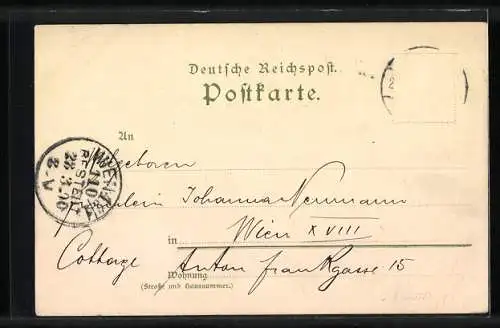 Deutsche Reichspost.
Postkarte.
An
Fräulein Johanna Neumann
in Wien XVIII
Cottage Anton Frankgasse 15
Wohnung
(Straße und Hausnummer.)
WIEN
110
BESTELLT
23.3.00
8.V